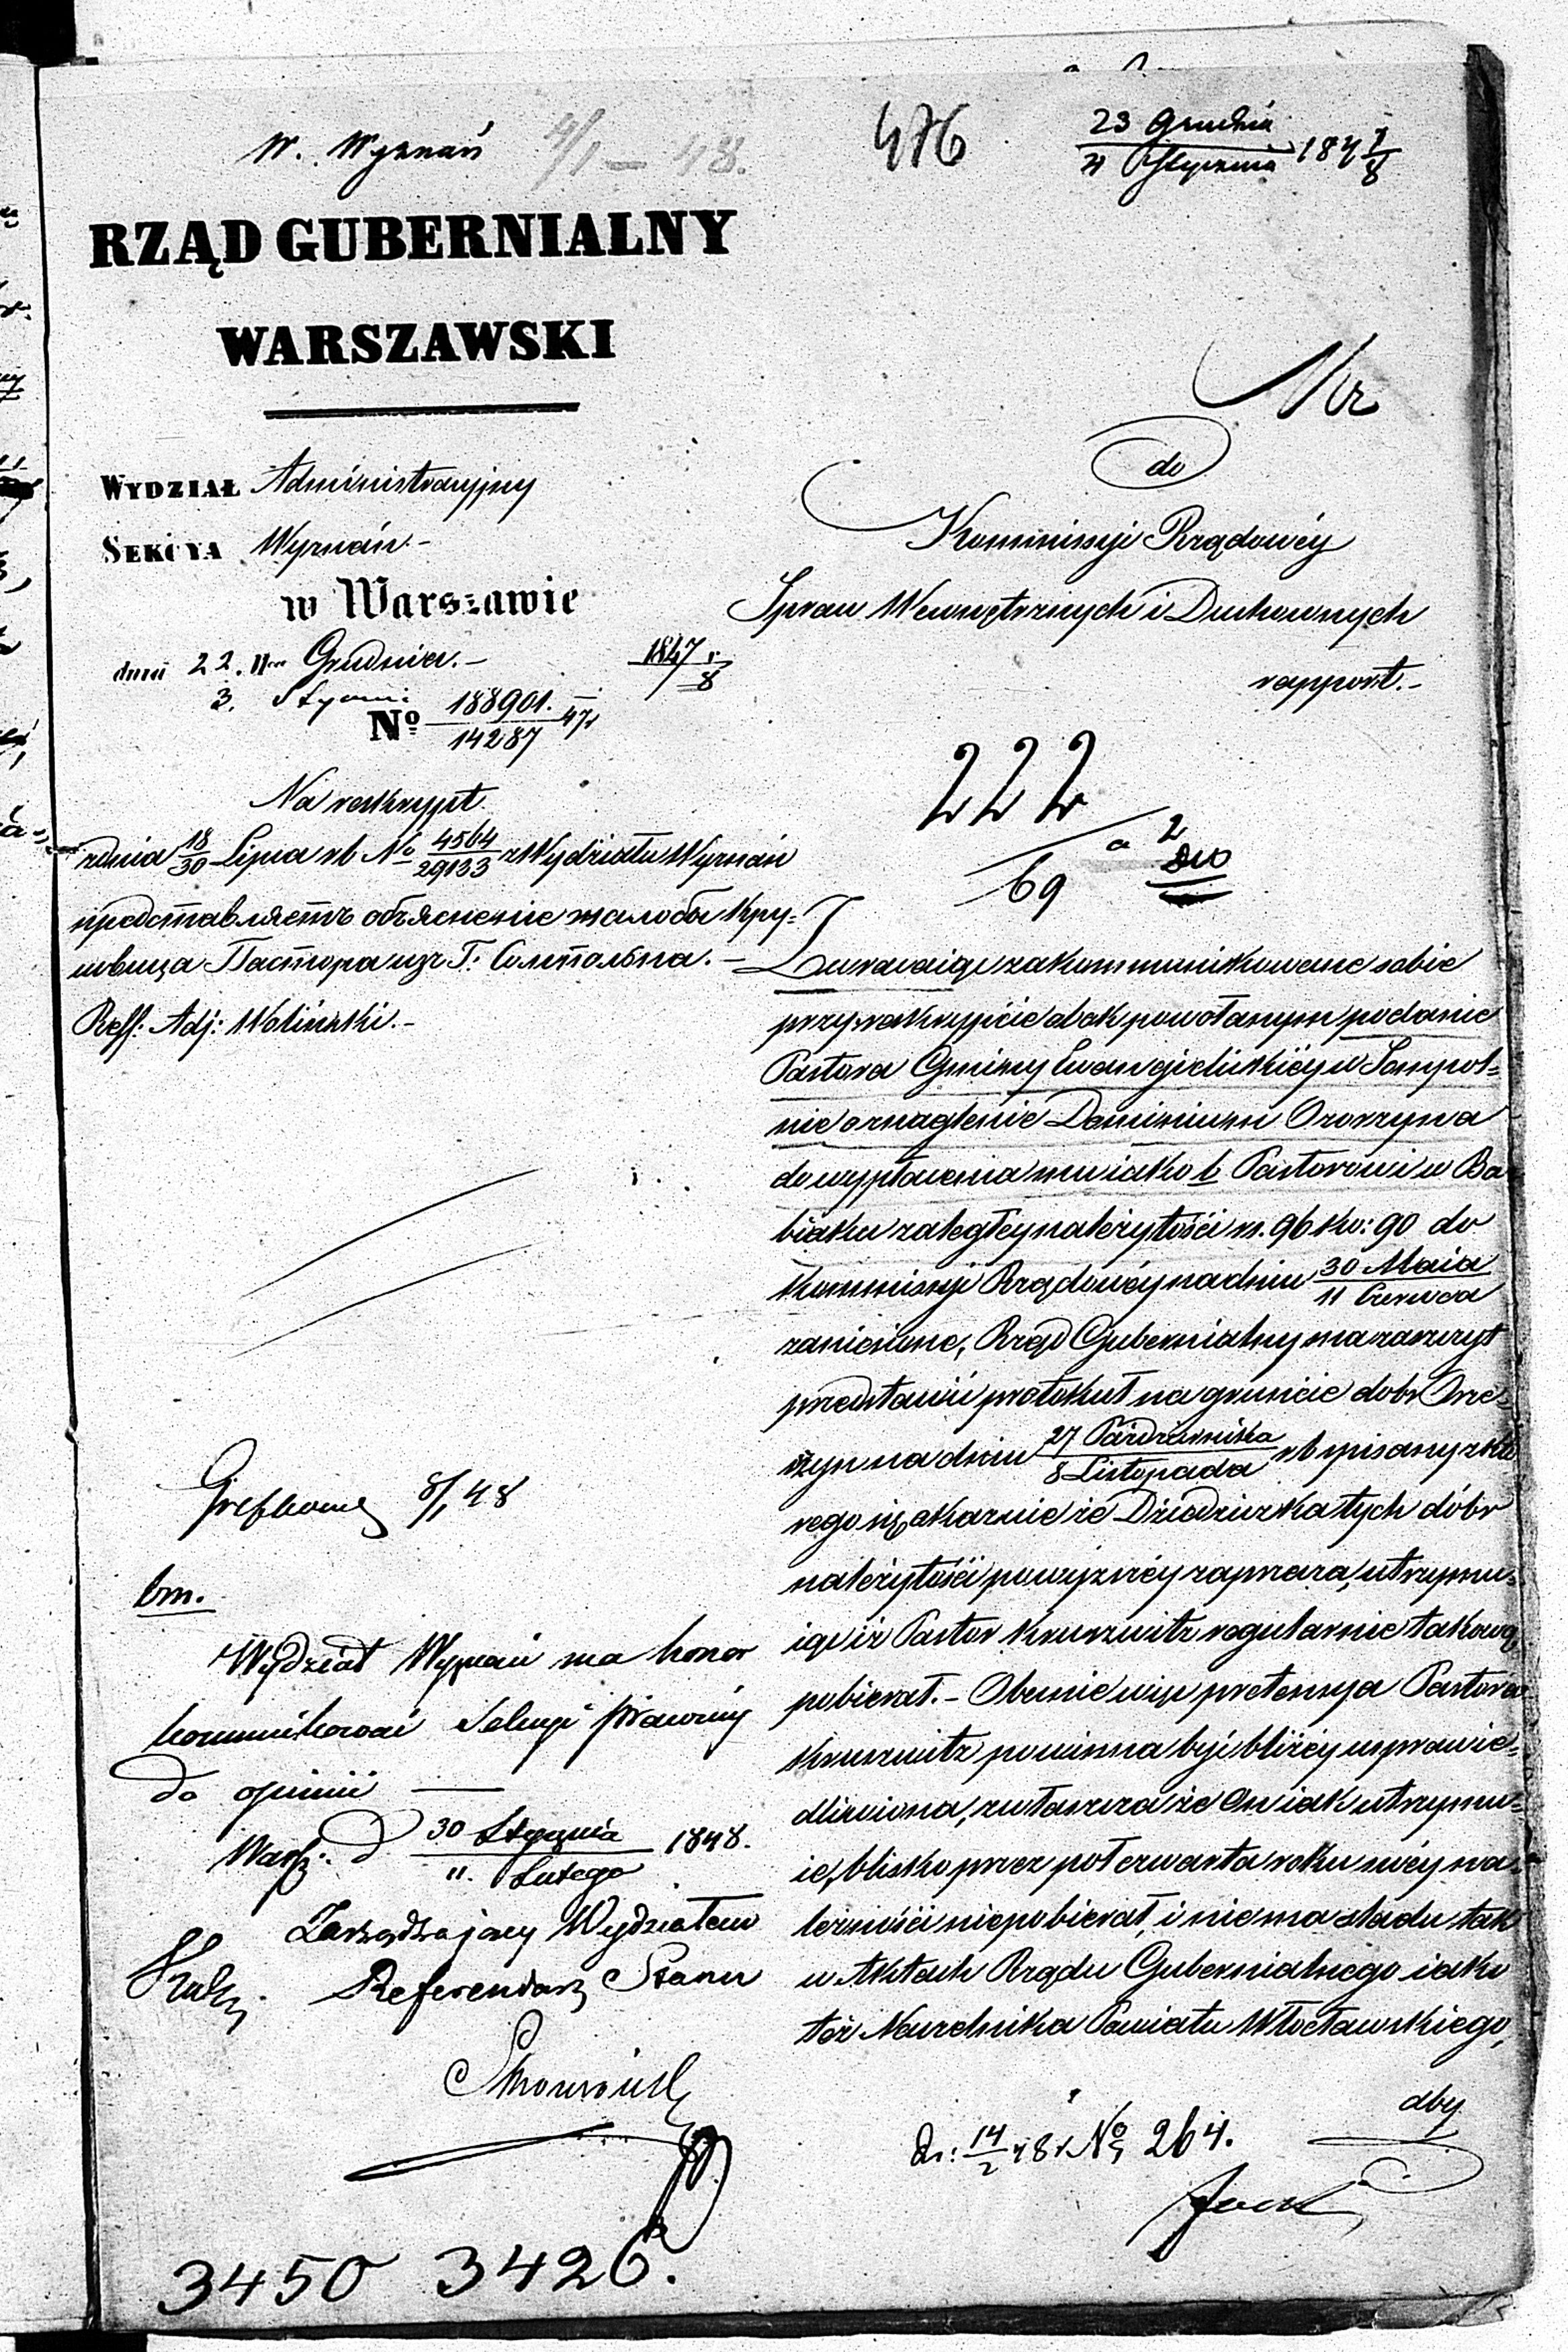 W. Wyznań
4/1 – 48.
476
23 Grudnia
4 Stycznia 1847/8
RZĄD GUBERNIALNY
WARSZAWSKI
WYDZIAŁ Administracyjny
SEKCYA Wyznań.–
w Warszawie
dnia 22. Grudnia.– 1847/8
3. Stycznia
No 188901./14287 47
Na reskrypt
z dnia 18/30 Lipca rb No 4564/29133 z Wydziału Wyznań
представляетъ объясненіе жалобы Кру-
швица Пастора изъ Г. Сомпольна.–
Reff: Adj: Woliński.–
do
Kommissyi Rządowéy
Spraw Wewnętrznych i Duchownych
rapport.–
222
69 a 2
Zwracaiąc zakommunikowane sobie
przy reskrypcie obok powołanym podanie
Pastora Gminy Ewangielickiéy w Sompol-
nie o znaglenie Dominium Ozorzyna
do wypłacenia mu iako b. Pastorowi w Ba
biaku zaległéy należytości rs. 96 ko: 90 do
Kommissyi Rządowéy na dniu 30 Maia/11 Czerwca
zaniesione, Rząd Gubernialny ma zaszczyt
przedstawić protokuł na gruncie dobr Orze-
szyn na dniu 27 Października/8 Listopada rb spisany z któ
rego się okazuie że Dziedziczka tych dóbr
należytości powyższéy zaprzecza, utrzymu-
iąc iż Pastor Kruszwitz regularnie takową
pobierał.– Obecnie więc pretensya Pastora
Kruszwitz powinna być bliżéy usprawie-
dliwiona, zwłaszcza że On iak utrzymu-
ie, blisko przez poł czwarta roku swéy na-
leżności niepobierał, i niema śladu tak
w Aktach Rządu Gubernialnego iako
też Naczelnika Powiatu Włocławskiego,
aby
8/1 48
bm.
Wydział Wyznań ma honor
kommunikować Sekcyi Prawnéy
do opinii —
Warsz. d 30 Stycznia/11. Lutego 1848.
Zarządzający Wydziałem
Referendarz Stanu
Dr: 14/2 48 r No 264.
3450 3426.